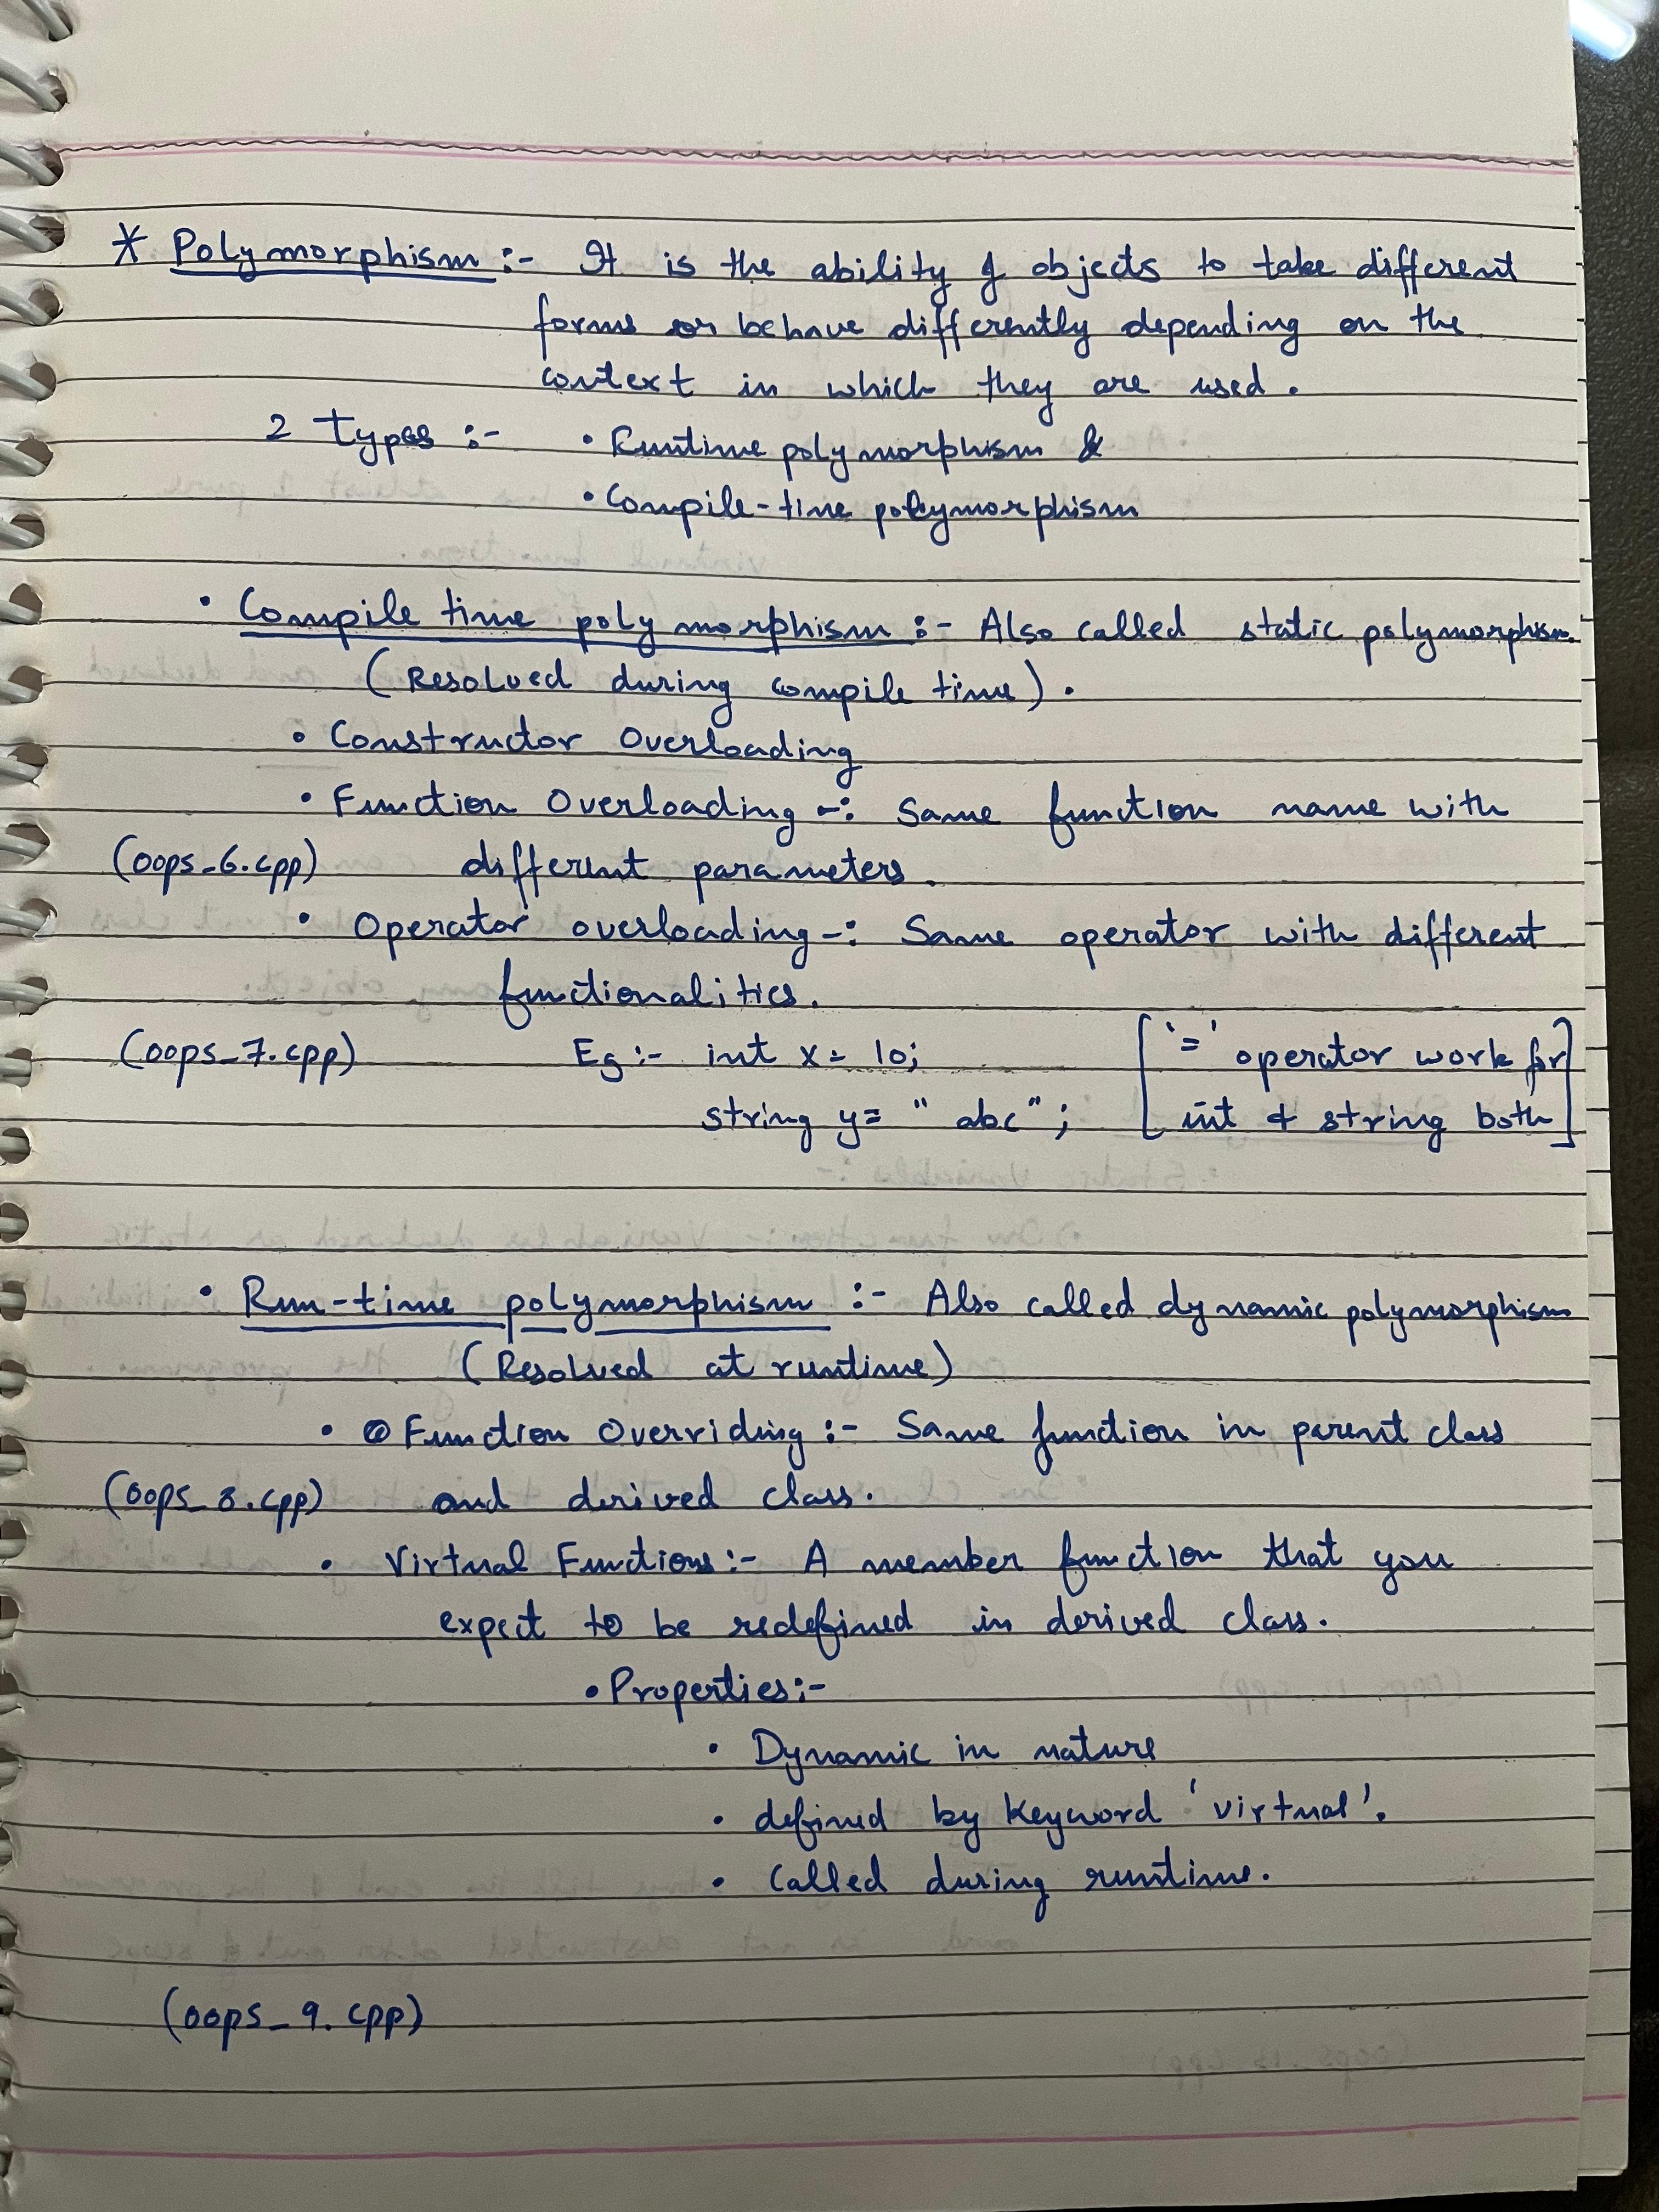 * Polymorphism :- It is the ability of objects to take different
forms or behave differently depending on the
context in which they are used.
2 Types :- • Runtime polymorphism &
• Compile-time polymorphism
• Compile time polymorphism :- Also called static polymorphism.
(Resolved during compile time).
• Constructor Overloading
• Function Overloading -: Same function name with
(oops_6.cpp) different parameters.
• Operator overloading -: Same operator with different
functionalities.
(oops_7.cpp) Eg :- int x = 10; [ '=' operator work for
string y = "abc"; int & string both ]
• Run-time polymorphism :- Also called dynamic polymorphism
(Resolved at runtime)
• Function Overriding :- Same function in parent class
(oops_8.cpp) and derived class.
• Virtual Functions :- A member function that you
expect to be redefined in derived class.
• Properties :-
• Dynamic in nature
• defined by keyword 'virtual'.
• Called during runtime.
(oops_9.cpp)